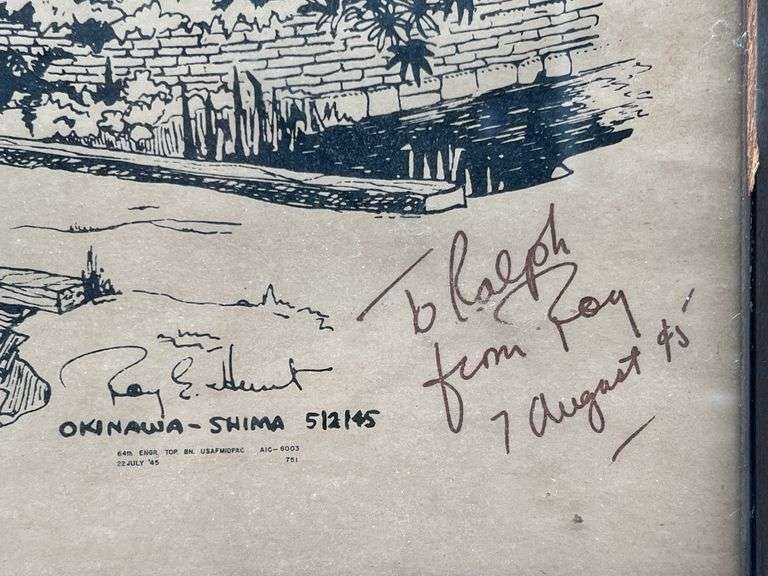 Roy E. Hunt
OKINAWA-SHIMA 5/2/45
64th ENGR. TOP. BN. USAFMIDPAC AIC-6003
22 JULY '45 751
To Ralph
from Roy
7 August 45